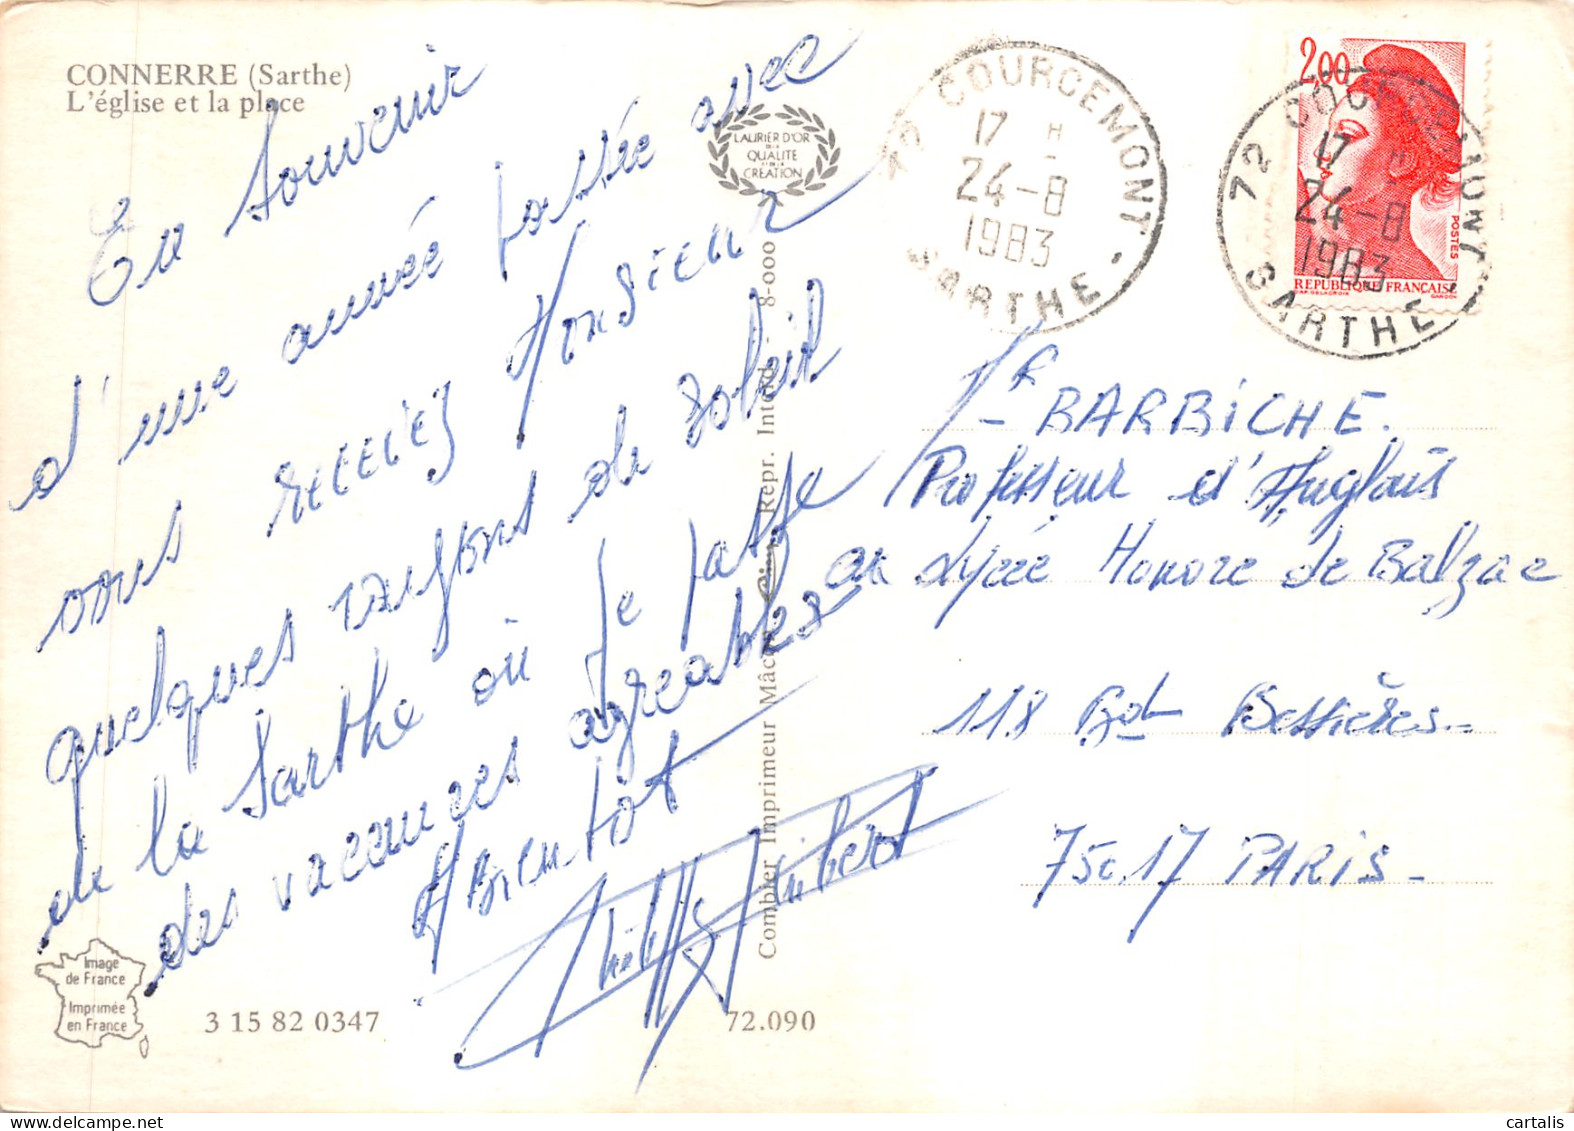 CONNERRE (Sarthe)
L'église et la place
En souvenir
d'une année passée avec
vous recevez Monsieur
quelques rayons de soleil
de la Sarthe où je passe
des vacances agreables
A Bientot
LAURIER D'OR
DE LA
QUALITE
ET DE LA
CREATION
Combier Imprimeur Mâcon
Repr. Interd. 8-000
Image
de France
Imprimée
en France
3 15 82 0347
72.090
72 COURCEMONT
17 H
24-8
1983
SARTHE
2,00
POSTES
REPUBLIQUE FRANÇAISE
D'AP. DELACROIX
GANDON
72 COURCEMONT
17 H
24-8
1983
SARTHE
Mr BARBiCHE.
Professeur d'Anglais
au Lycée Honore de Balzac
118 Bd Bessières
75017 PARiS -
cartalis